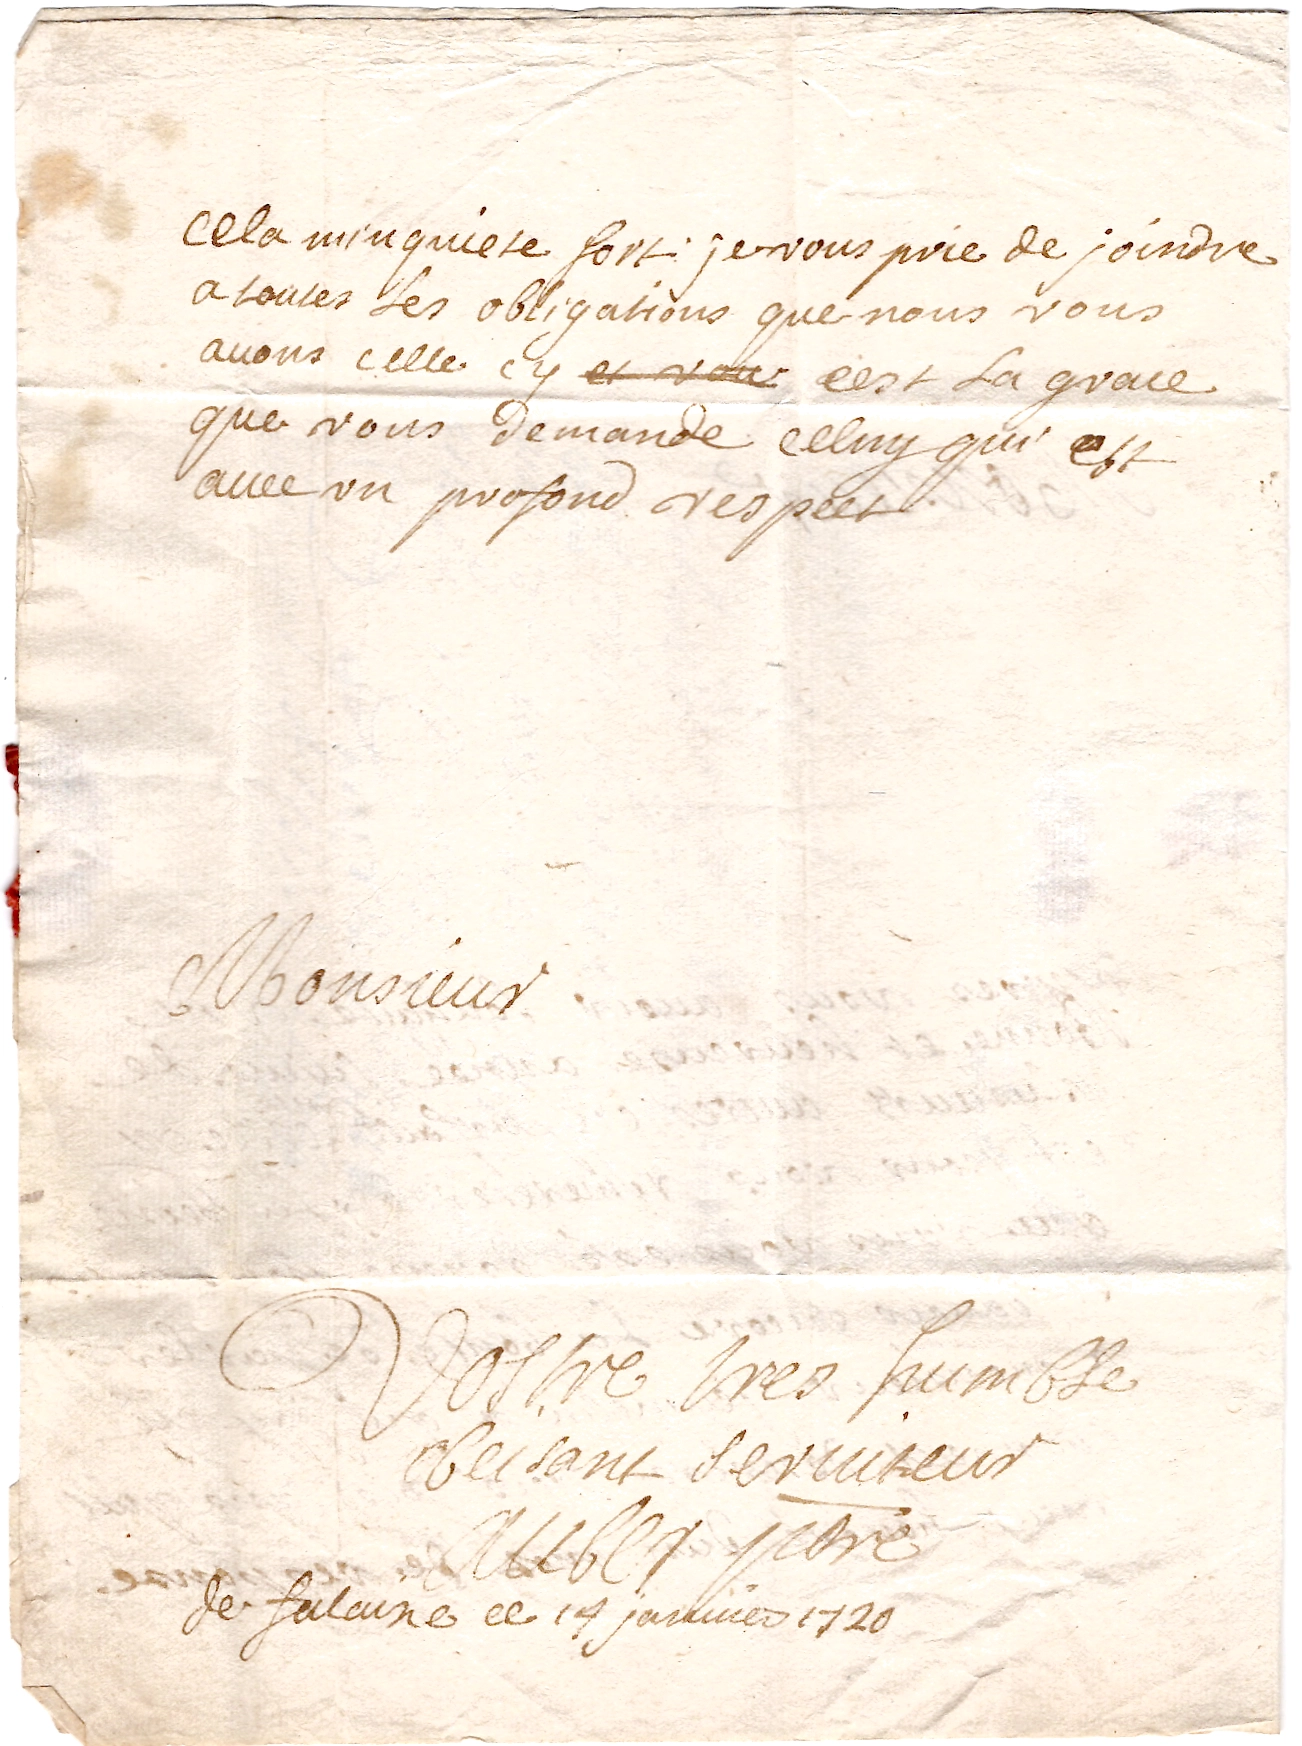 cela minquiete fort je vous prie de joindre
a toutes les obligations que nous vous
auons celle cy et vou cest la grace
que vous demande celuy qui est
auec vn profond respect
Monsieur
Vostre tres humble
obeisant seruiteur
Auber ptre
de falaise ce 14 januier 1720